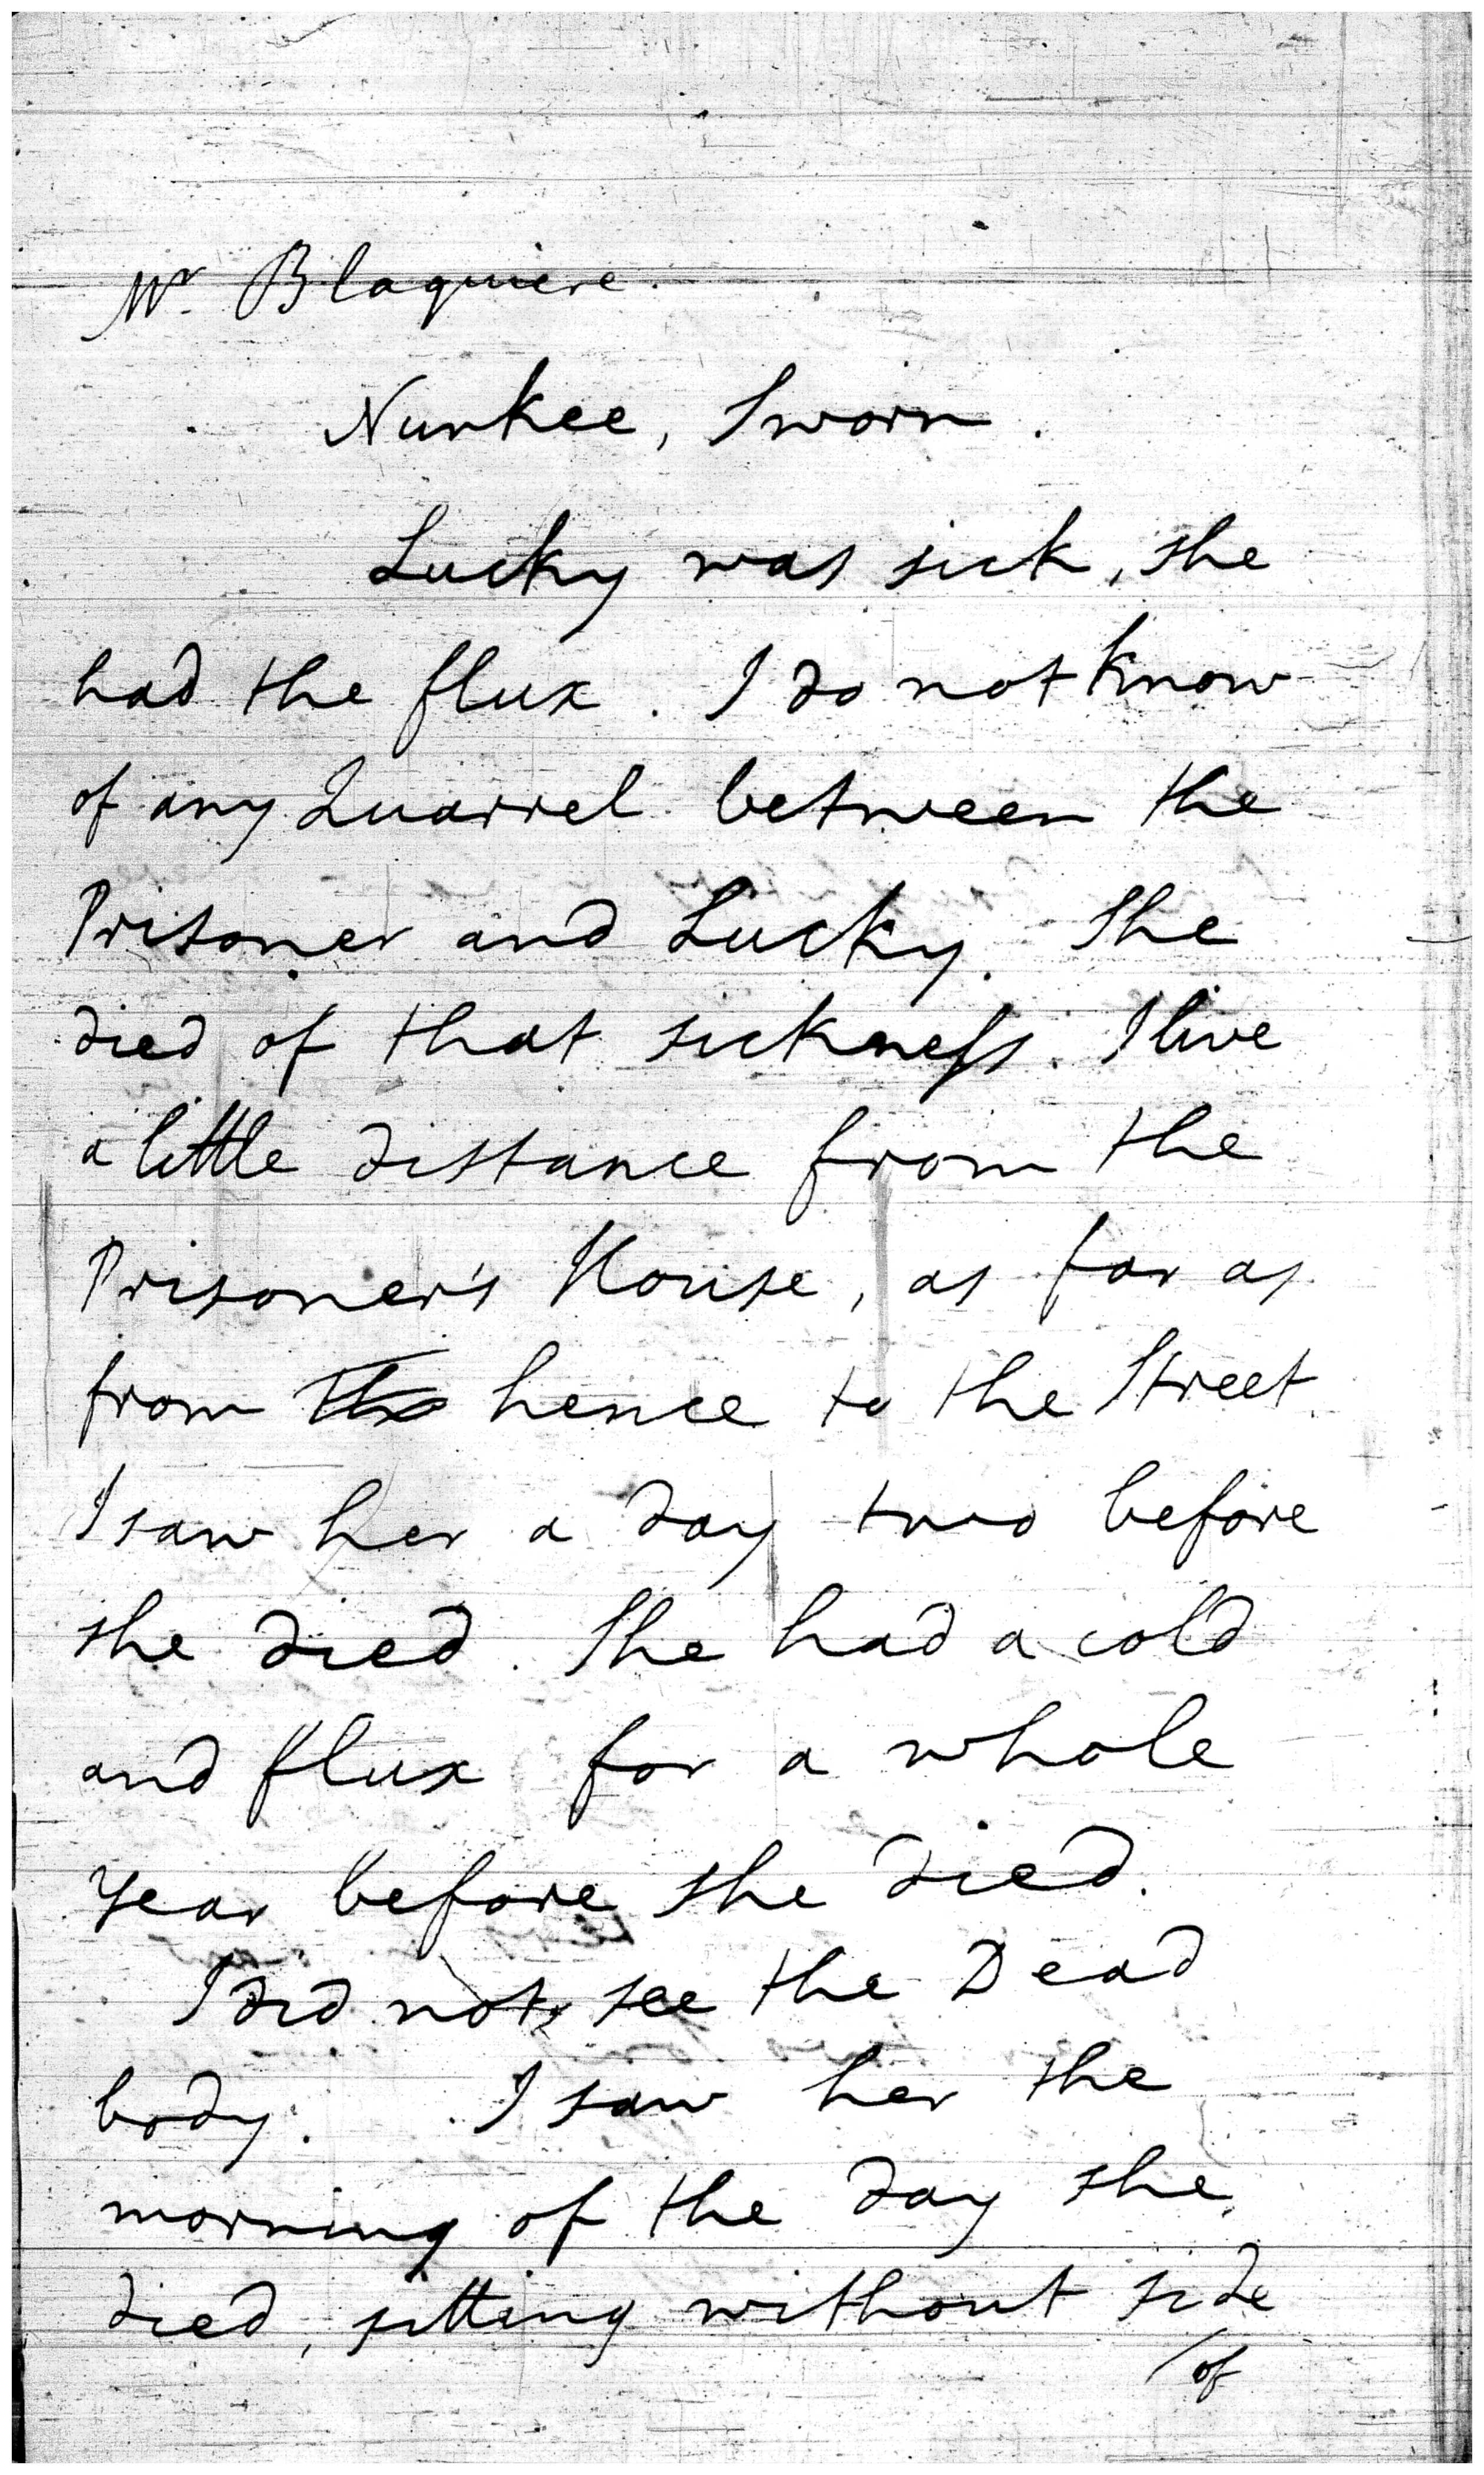 Mr. Blaquiere.
Nunkee, Sworn.
Lucky was sick, she
had the flux. I do not know
of any Quarrel between the
Prisoner and Lucky. She
died of that sickness. I live
a little distance from the
Prisoner's House, as far as
from the hence to the Street.
I saw her a day two before
she died. She had a cold
and flux for a whole
Year before she died.
I did not see the Dead
body. I saw her the
morning of the day she
died, sitting without side
of